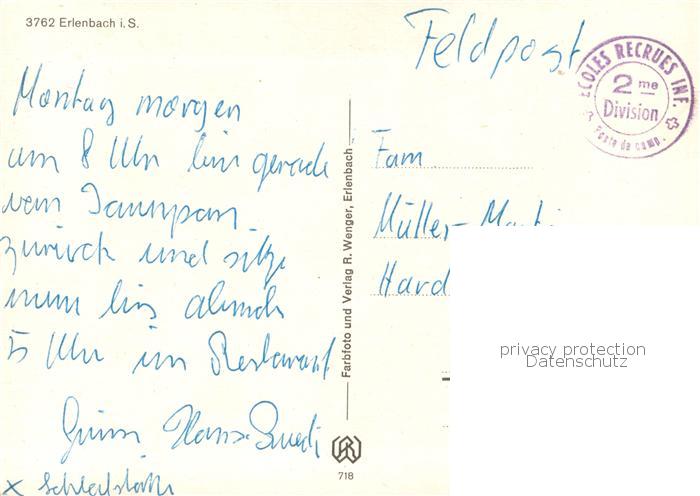 3762 Erlenbach i. S.
Feldpost
ECOLES RECRUES INF.
2me
Division
Poste de camp.
Montag morgen
um 8 Uhr bin gerade
vom Jaunpass
zurück und sitze
nun bis abends
5 Uhr im Restaurant
Hans-Ruedi
Fam
Müller-
Hard
Farbfoto und Verlag R. Wenger, Erlenbach
718
privacy protection
Datenschutz